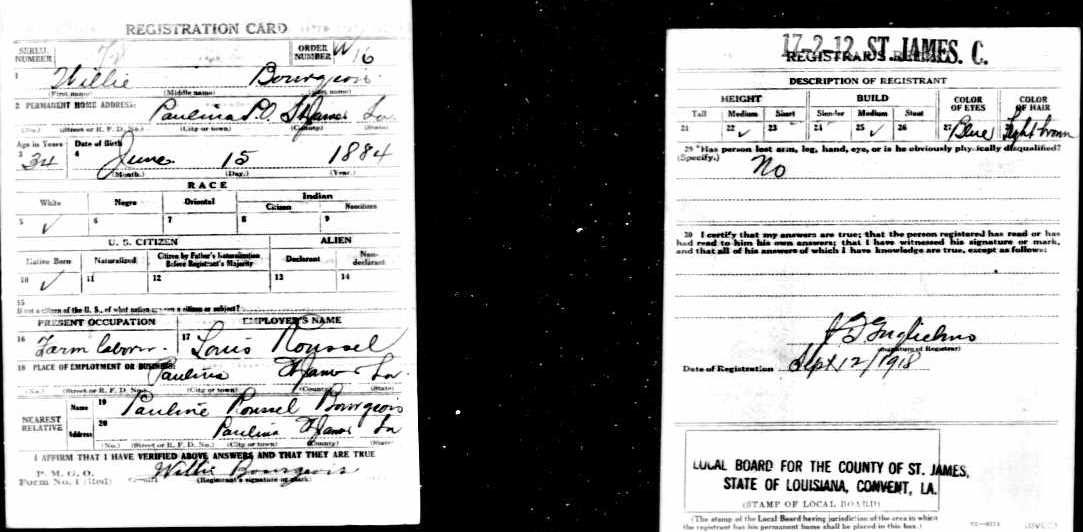 REGISTRATION CARD
SERIAL NUMBER
ORDER NUMBER 16
1 Willie Bourgeois
(First name) (Middle name) (Last name)
2 PERMANENT HOME ADDRESS: Paulina P.O. St James La
(No.) (Street or R. F. D. No.) (City or town) (County) (State)
Age in Years Date of Birth
3 34 4 June 15 1884
(Month.) (Day.) (Year.)
RACE
White Negro Oriental Indian
Citizen Noncitizen
5 ✓ 6 7 8 9
U. S. CITIZEN ALIEN
Native Born Naturalized Citizen by Father's Naturalization Before Registrant's Majority Declarant Non-declarant
10 ✓ 11 12 13 14
15
If not a citizen of the U. S., of what nation are you a citizen or subject?
PRESENT OCCUPATION EMPLOYER'S NAME
16 Farm laborer 17 Louis Roussel
18 PLACE OF EMPLOYMENT OR BUSINESS: Paulina St James La.
(No.) (Street or R. F. D. No.) (City or town) (County) (State)
NEAREST RELATIVE
Name 19 Pauline Roussel Bourgeois
Address 20 Paulina St James La
(No.) (Street or R. F. D. No.) (City or town) (County) (State)
I AFFIRM THAT I HAVE VERIFIED ABOVE ANSWERS AND THAT THEY ARE TRUE
P. M. G. O.
Form No. 1 (Red) Willie Bourgeois
(Registrant's signature or mark)
17-2-12 ST. JAMES. C.
REGISTRAR'S REPORT
DESCRIPTION OF REGISTRANT
HEIGHT BUILD COLOR OF EYES COLOR OF HAIR
Tall Medium Short Slender Medium Stout
21 22 ✓ 23 24 25 ✓ 26 27 Blue Light brown
29 Has person lost arm, leg, hand, eye, or is he obviously physically disqualified?
(Specify.) No
30 I certify that my answers are true; that the person registered has read or has
had read to him his own answers; that I have witnessed his signature or mark,
and that all of his answers of which I have knowledge are true, except as follows:
(Signature of Registrar)
Date of Registration Sept 12/1918
LOCAL BOARD FOR THE COUNTY OF ST. JAMES,
STATE OF LOUISIANA, CONVENT, LA.
(STAMP OF LOCAL BOARD)
(The stamp of the Local Board having jurisdiction of the area in which
the registrant has his permanent home shall be placed in this box.)